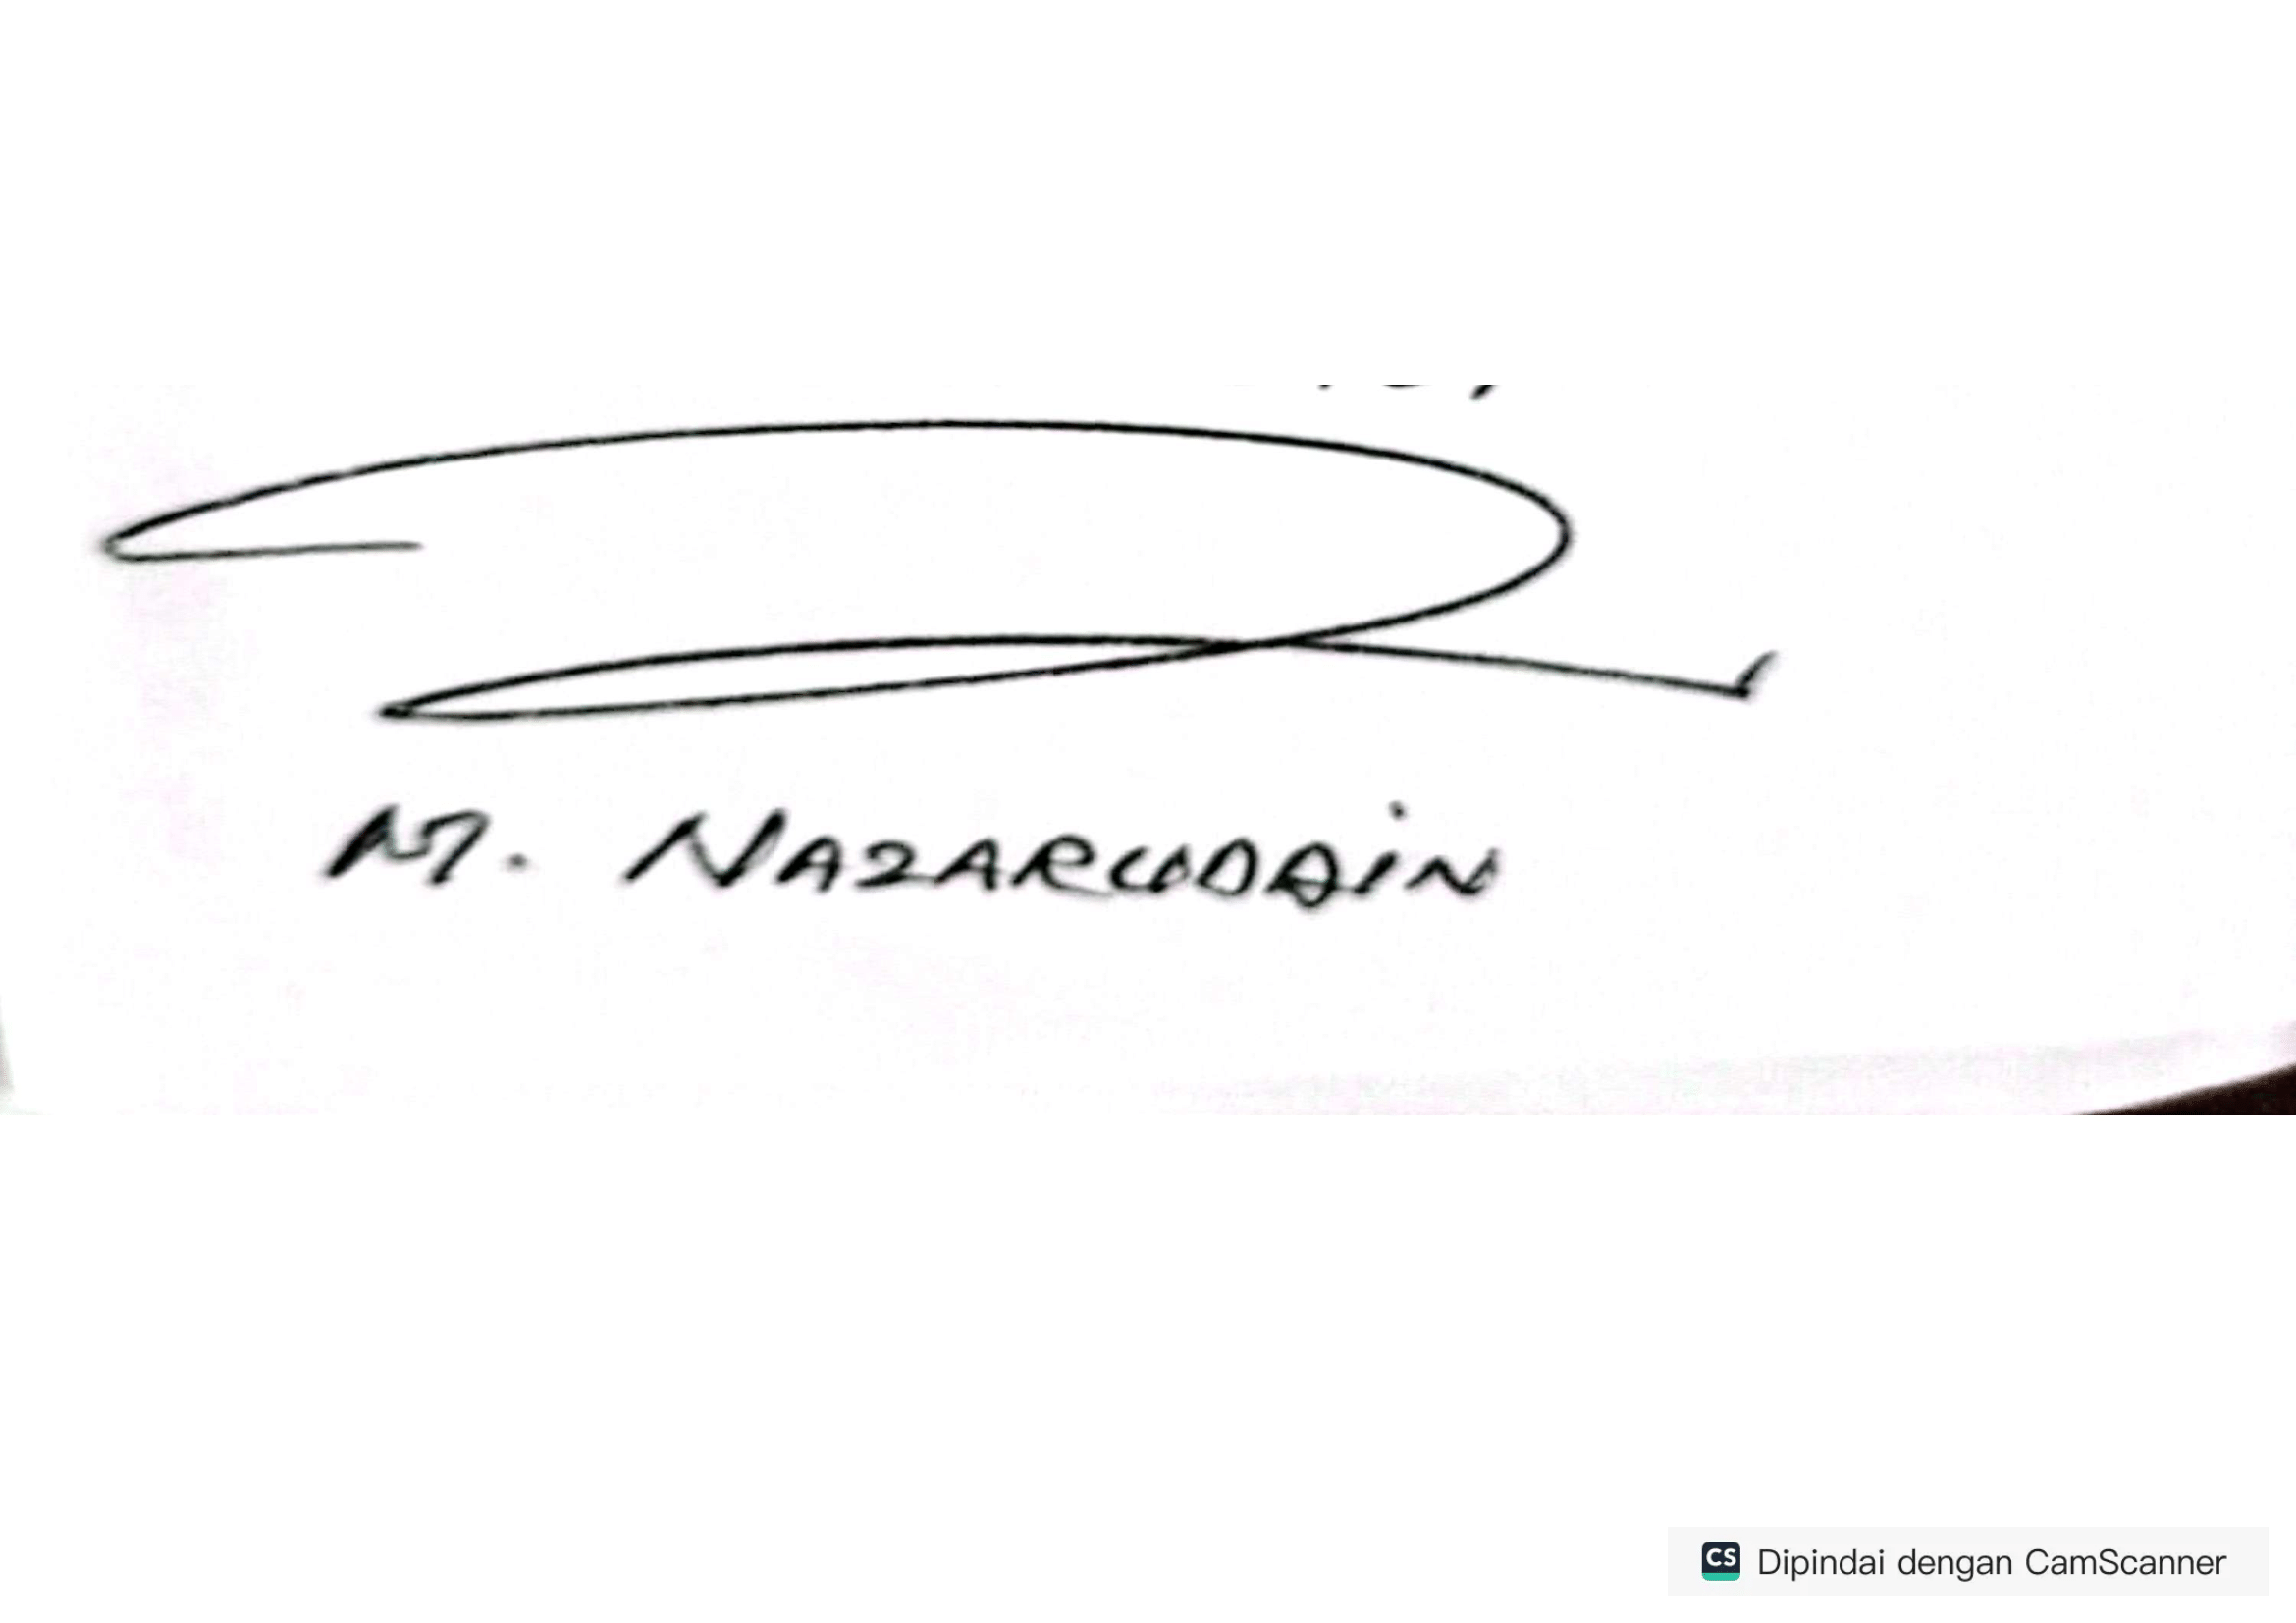 M. NAZARUDDIN
CS Dipindai dengan CamScanner